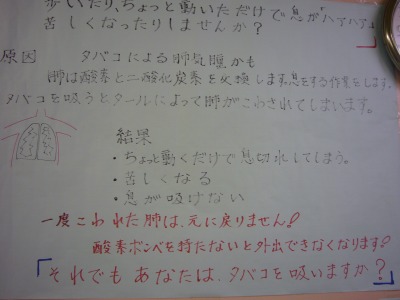 歩いたり、ちょっと動いただけで息が「ハアハア」
苦しくなったりしませんか?
原因 タバコによる肺気腫かも
肺は酸素と二酸化炭素を交換します。息をする作業をします。
タバコを吸うとタールによって肺がこわされてしまいます。
結果
・ちょっと動くだけで息切れしてしまう。
・苦しくなる
・息が吸けない
一度こわれた肺は、元に戻りません!
酸素ボンベを持たないと外出できなくなります!
「それでもあなたは、タバコを吸いますか?」